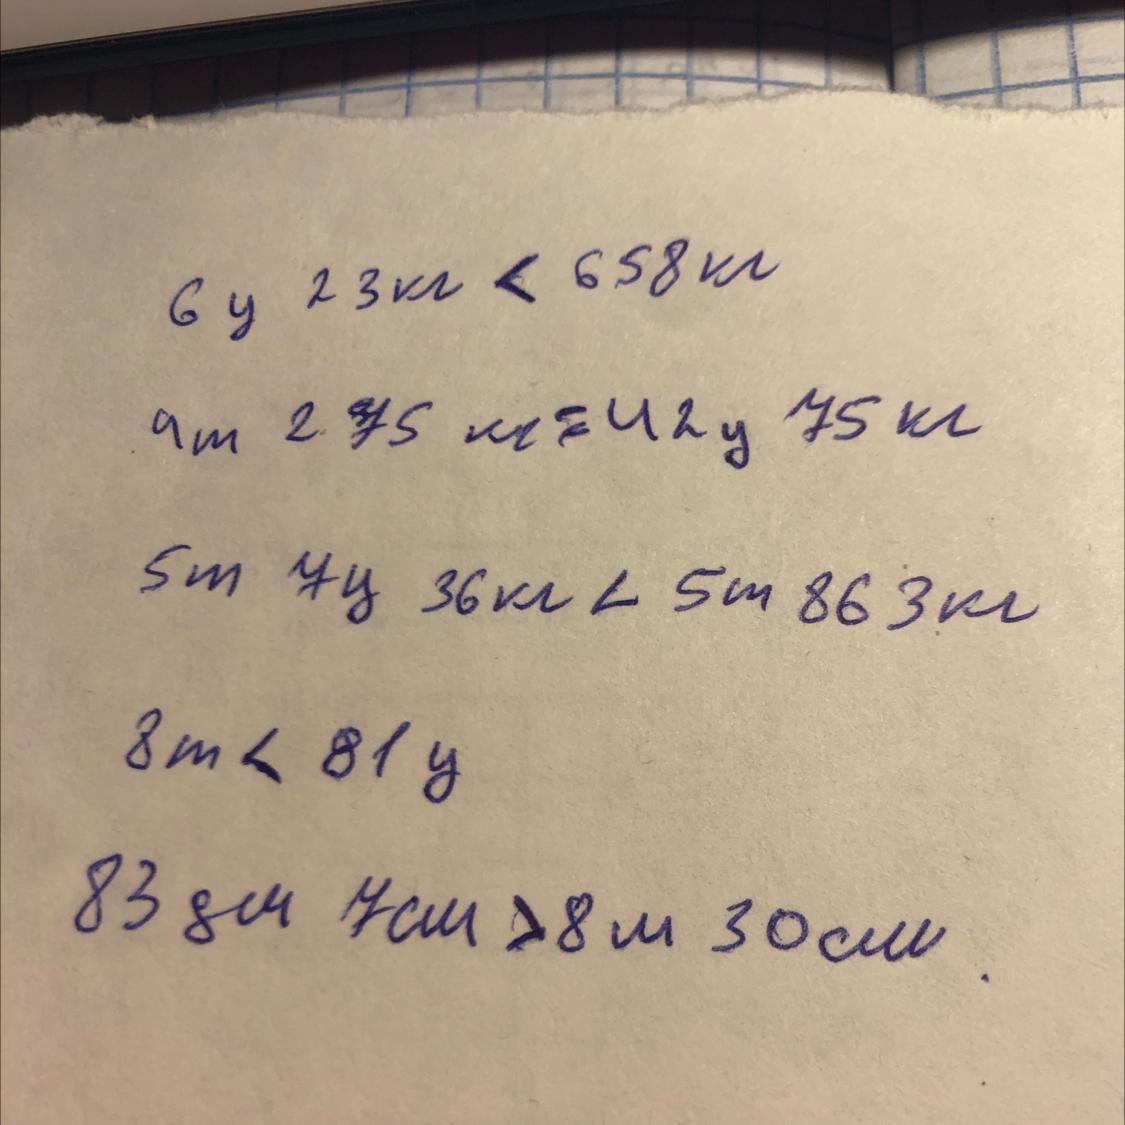 6ц 23кг < 658кг
4т 275 кг = 42ц 75кг
5т 7ц 36кг < 5т 863кг
8т < 81ц
83дм 7см > 8м 30см.